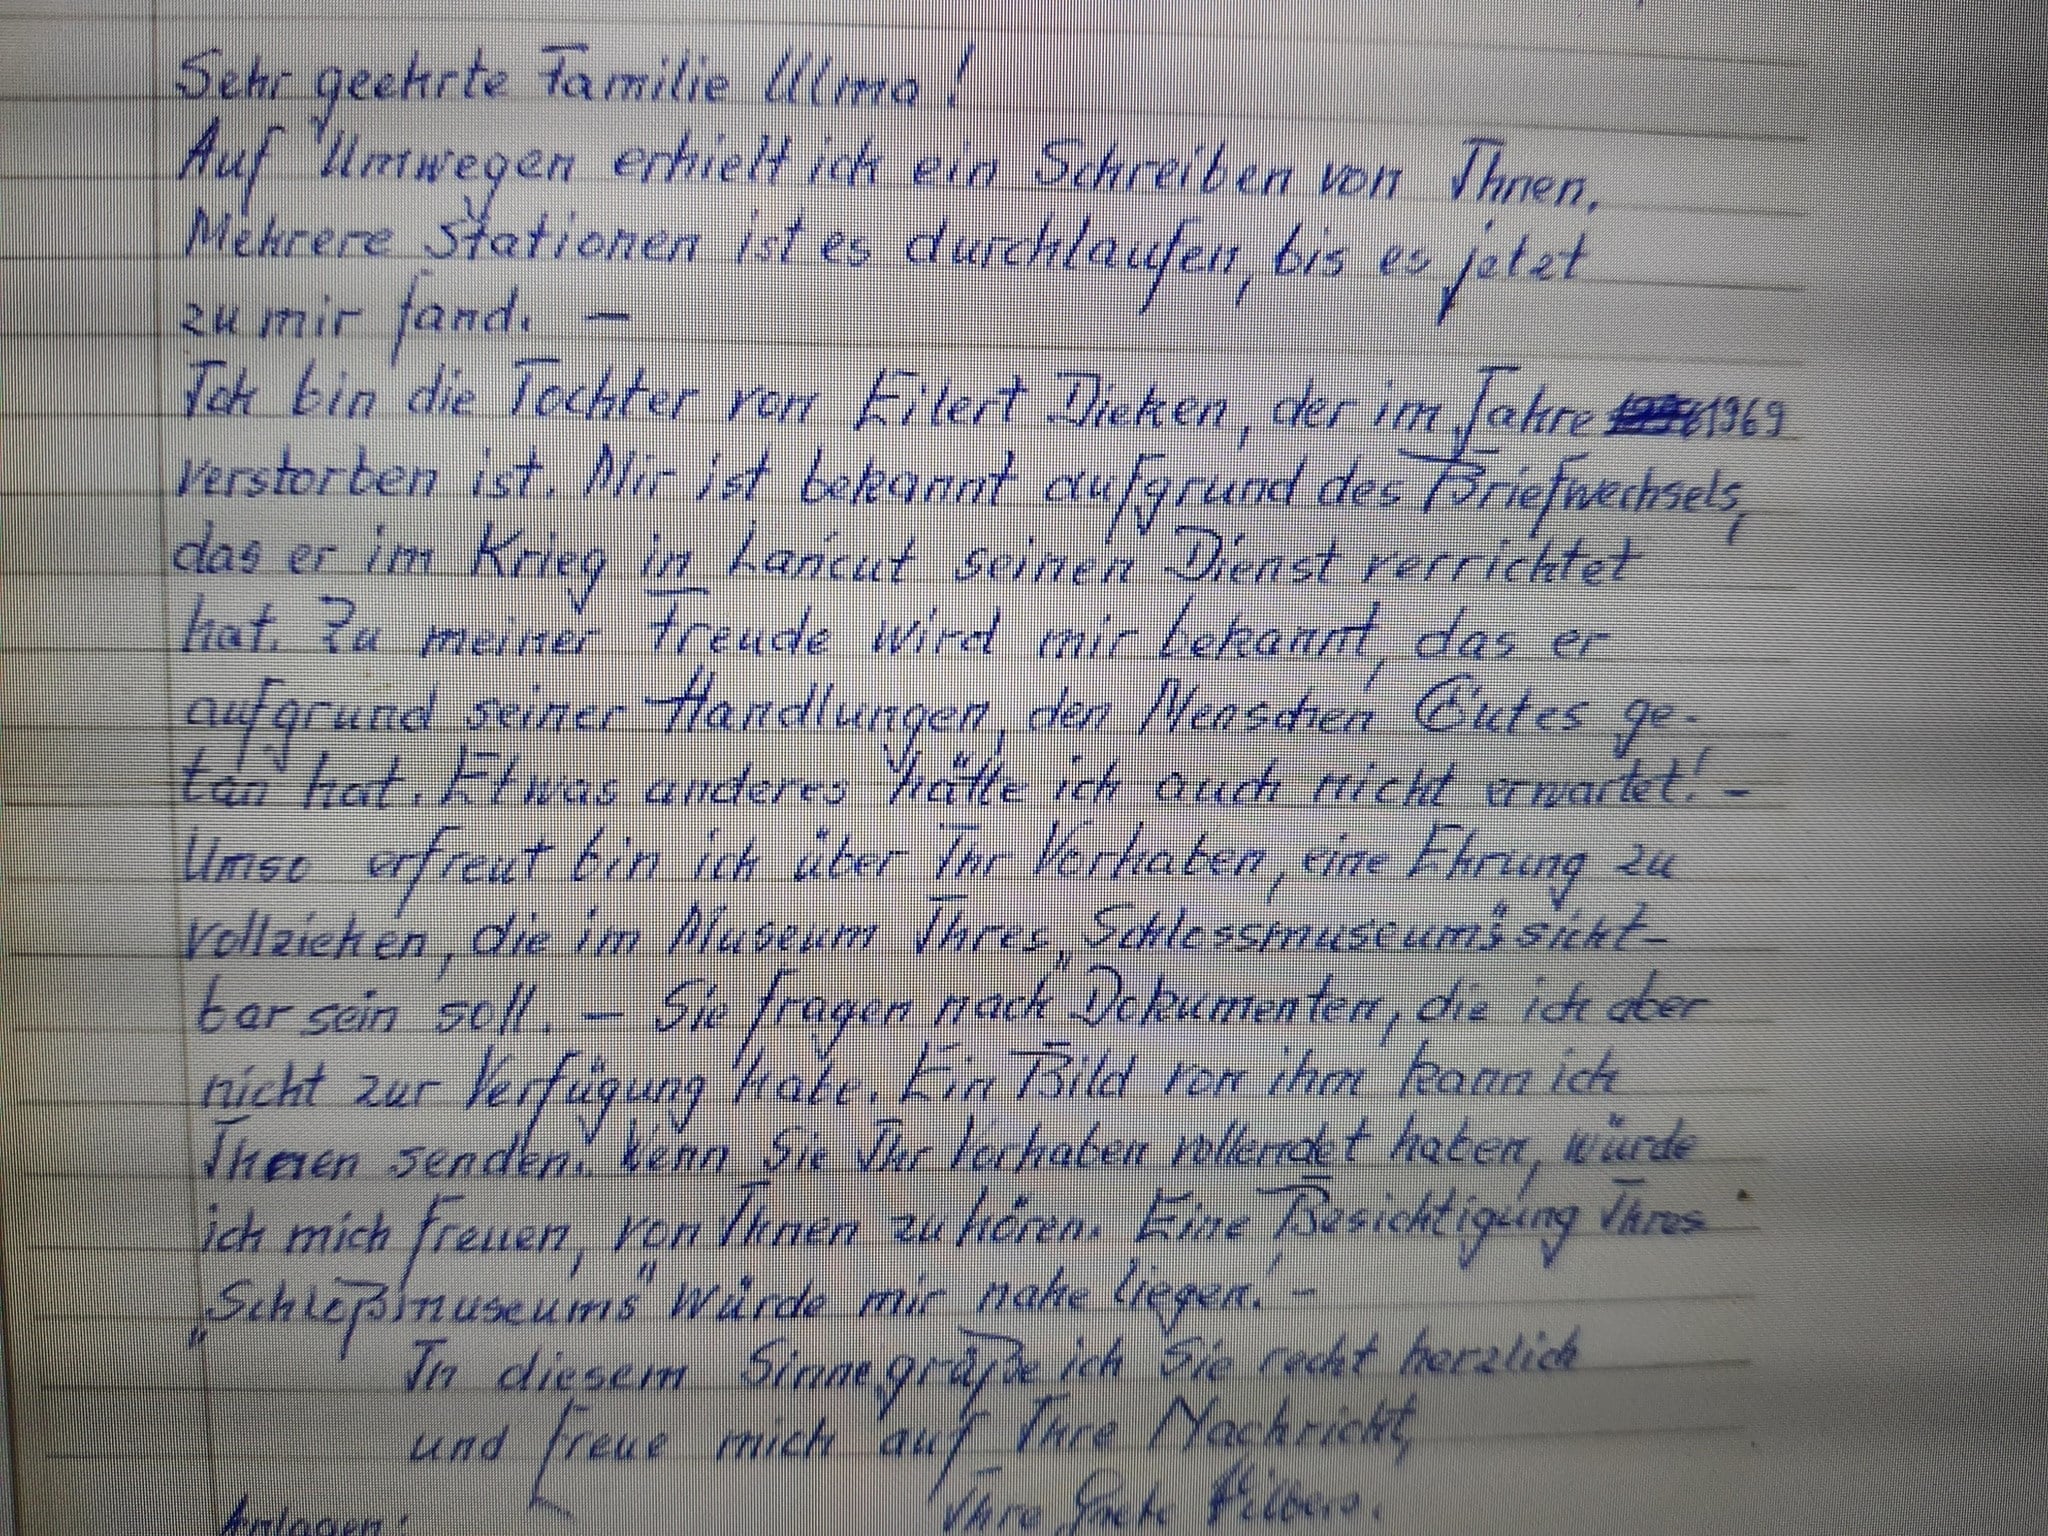 Sehr geehrte Familie Ulma!
Auf Umwegen erhielt ich ein Schreiben von Ihnen.
Mehrere Stationen ist es durchlaufen, bis es jetzt
zu mir fand. —
Ich bin die Tochter von Eilert Dieken, der im Jahre 1969
verstorben ist. Mir ist bekannt aufgrund des Briefwechsels,
das er im Krieg in Łańcut seinen Dienst verrichtet
hat. Zu meiner Freude wird mir bekannt, das er
aufgrund seiner Handlungen, den Menschen Gutes ge-
tan hat. Etwas anderes hätte ich auch nicht erwartet! -
Umso erfreut bin ich über Ihr Vorhaben, eine Ehrung zu
vollziehen, die im Museum Ihres „Schlossmuseum"s sicht-
bar sein soll. — Sie fragen nach Dokumenten, die ich aber
nicht zur Verfügung habe. Ein Bild von ihm kann ich
Ihnen senden. Wenn Sie Ihr Vorhaben vollendet haben, würde
ich mich freuen, von Ihnen zu hören. Eine Besichtigung Ihres
„Schloßmuseums" würde mir nahe liegen! -
In diesem Sinne grüße ich Sie recht herzlich
und freue mich auf Ihre Nachricht,
Ihre
Anlagen: